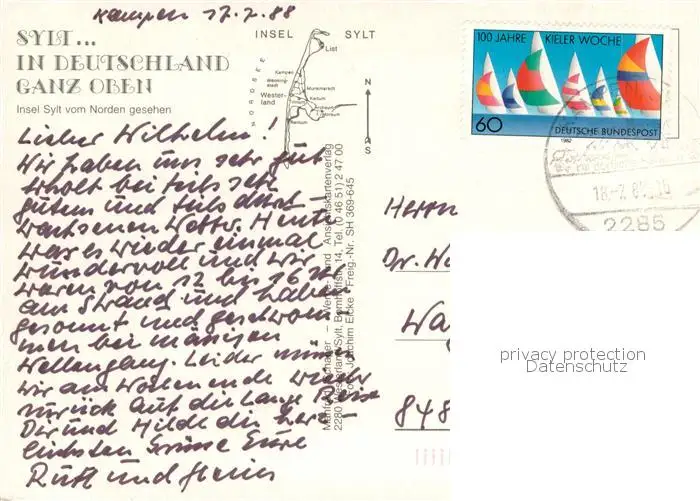 Kampen 17.7.88
SYLT...
IN DEUTSCHLAND
GANZ OBEN
Insel Sylt vom Norden gesehen
INSEL SYLT
NORDSEE
List
Kampen
Wenning-
stedt
Wester-
land
Munkmarsch
Keitum
Morsum
N
S
100 JAHRE KIELER WOCHE
60
DEUTSCHE BUNDESPOST
1982
18.-7.88
2285
Lieber Wilhelm!
Wir haben uns sehr gut
erholt bei teils sehr
guten und teils durch-
wachsenen Wetter. Heute
war es wieder einmal
wundervoll und wir
waren von 12 bis 16 Uhr
am Strand und haben
gesonnt und geschwom-
men bei mässigen
Wellengang. Leider müssen
wir am Wochenende wieder
zurück auf die lange Reise
Dir und Hilde die herz-
lichsten Grüsse Eure
Ruth und Heini
Manfred - Werbe- und Ansichtskartenverlag
2280 Westerland/Sylt, Bomhoffstr. 14, Tel. (0 46 51) 2 47 00
Foto: Joachim Eicke · Freig.-Nr. SH 369-645
Herrn
Dr. W
Wa
848
privacy protection
Datenschutz